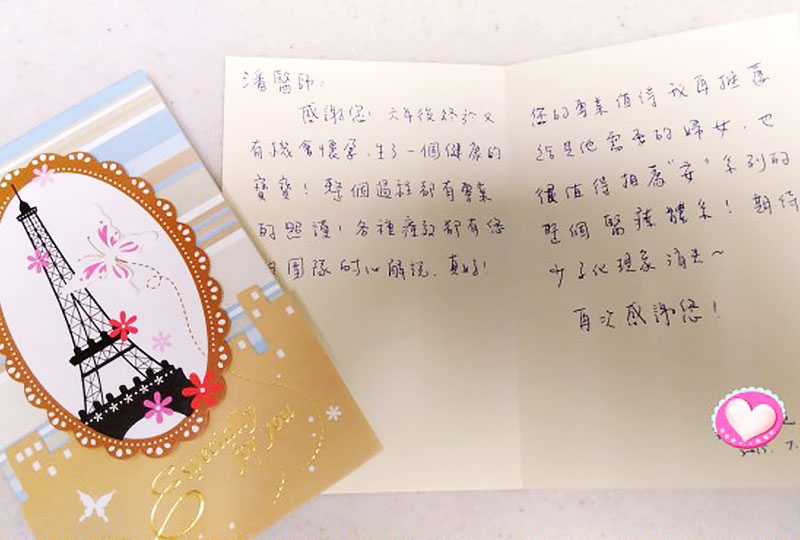 潘醫師：
感謝您！六年後終於又
有機會懷孕，生了一個健康的
寶寶！整個過程都有專業
的照護！各種症狀都有您
團隊的心解說，真好！
您的專業值得我再推薦
給其他需要的婦女，也
很值得推薦"安"系列的
整個醫療體系！期待
少子化現象消失～
再次感謝您！
Especially
for you